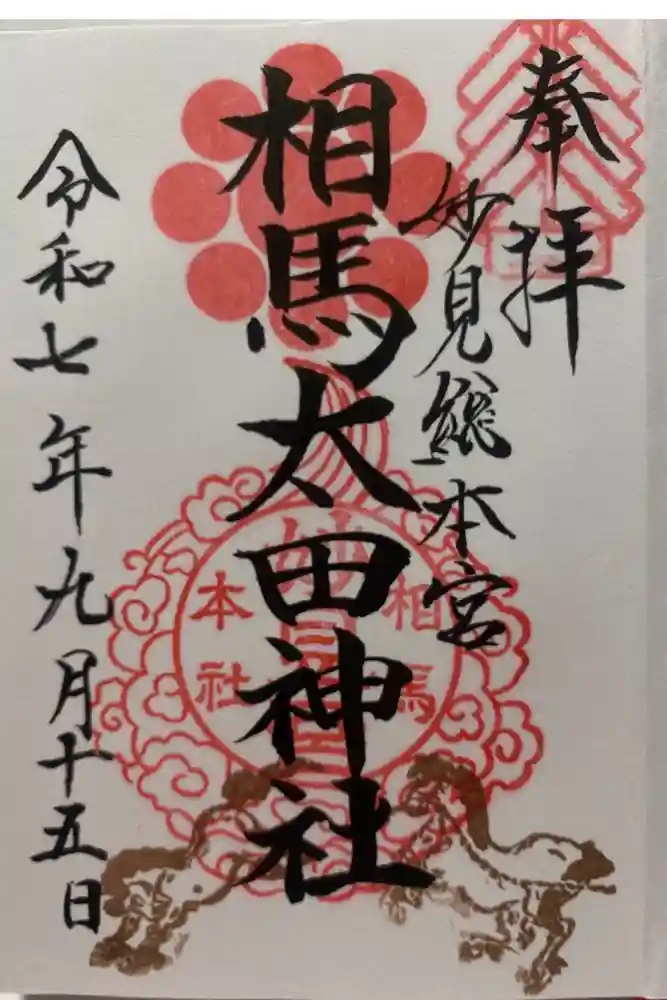 奉拝
妙見総本宮
相馬太田神社
相馬
妙見
本社
令和七年九月十五日